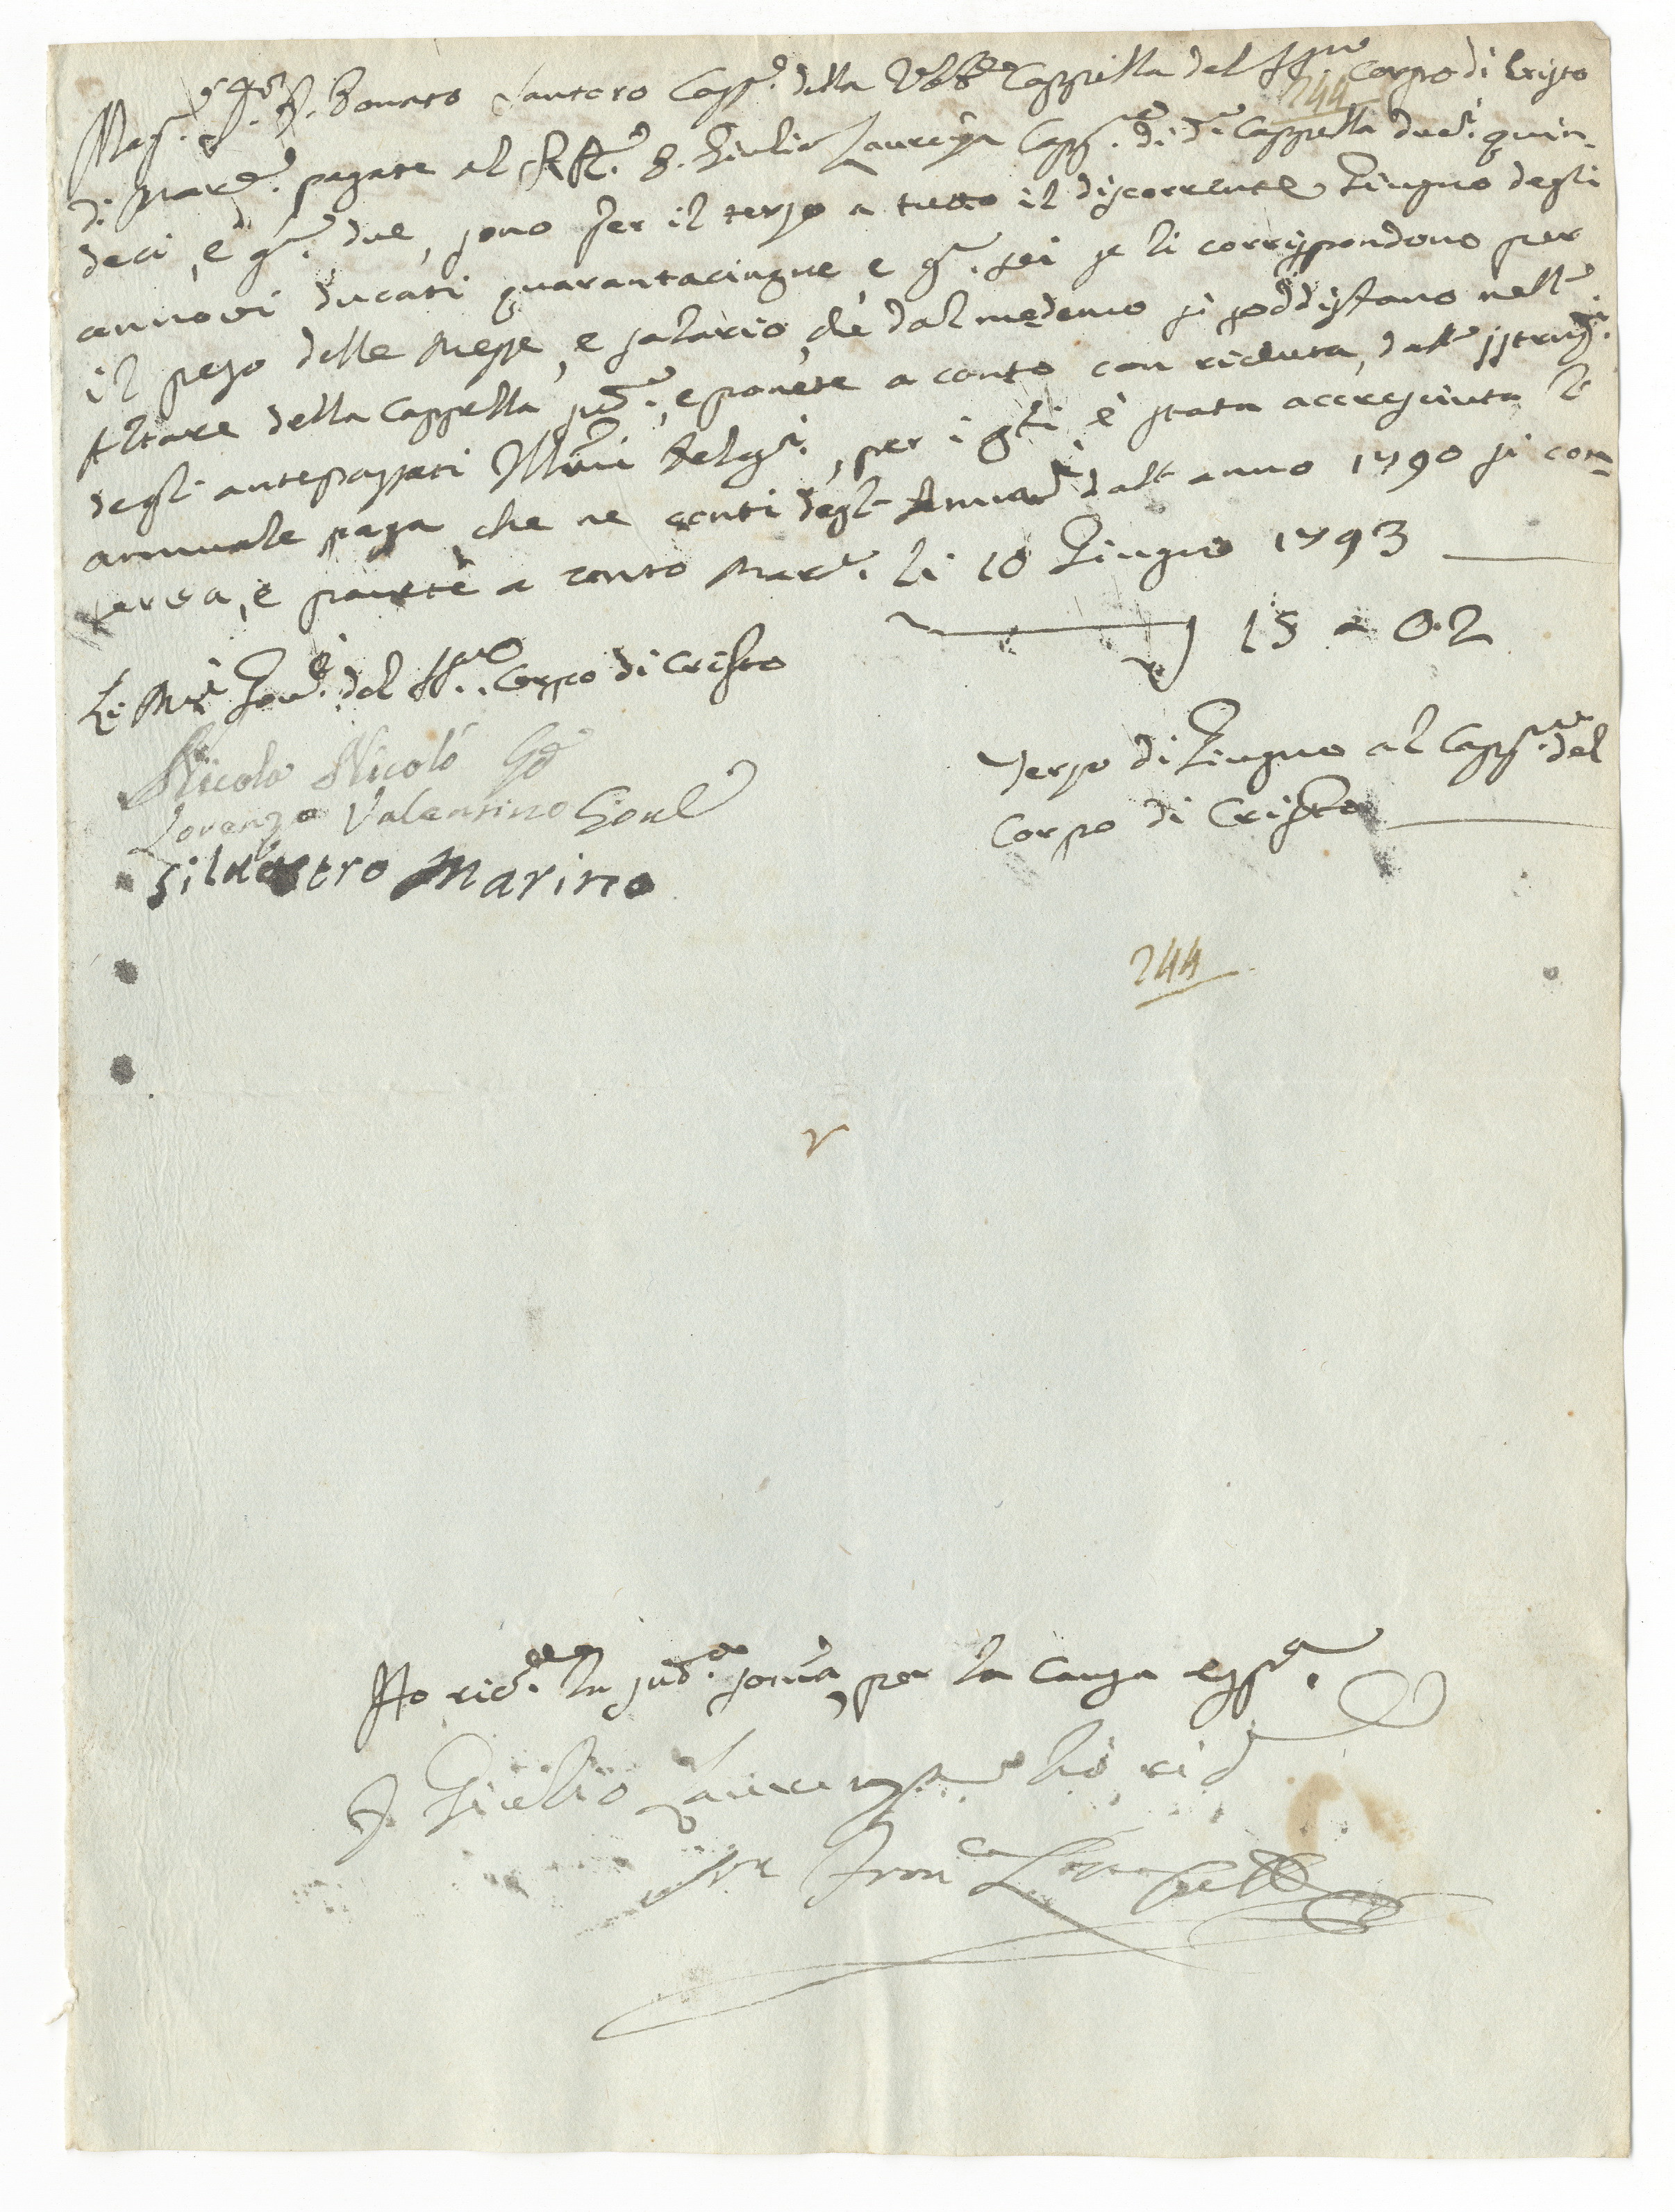 Mag.co Sig.r D. Donato Santoro Cass.e della V̅b̅le Cappella del SS.mo Corpo di Cristo
244
di Mard.e pagate al R.R.do D. Giulio Laurenza Capp.no di d.a Cappella duc.ti quin-
deci, e g.na due, sono per il terzo a tutto il discorrente Giugno degli
annovi ducati quarantacinque e g.na sei se li corrispondono per
il peso delle Messe, e salario, che dal medemo si soddisfano nell'
Altare della Cappella sud.a, e ponete a conto con riceuta, dall' Istruz.ni
degl' antepassati Ill.mi Deleg.ti, per i q.li è stata accresciuta l'
annuale paga, che ne conti degl' dall' anno 1790 si con-
serva, e ponete a conto Mard.e li 10 Giugno 1793
15 = 02
Li M.ci Gov.ri del SS.mo Corpo di Cristo
Nicola Nicolò
Lorenzo Valentino
Silvestro Marino
Terzo di Giugno al Capp.no del
Corpo di Cristo
244
Ho ric.to la sud.a soma per la causa esp.a
D. Giulio Laurenza ho ric